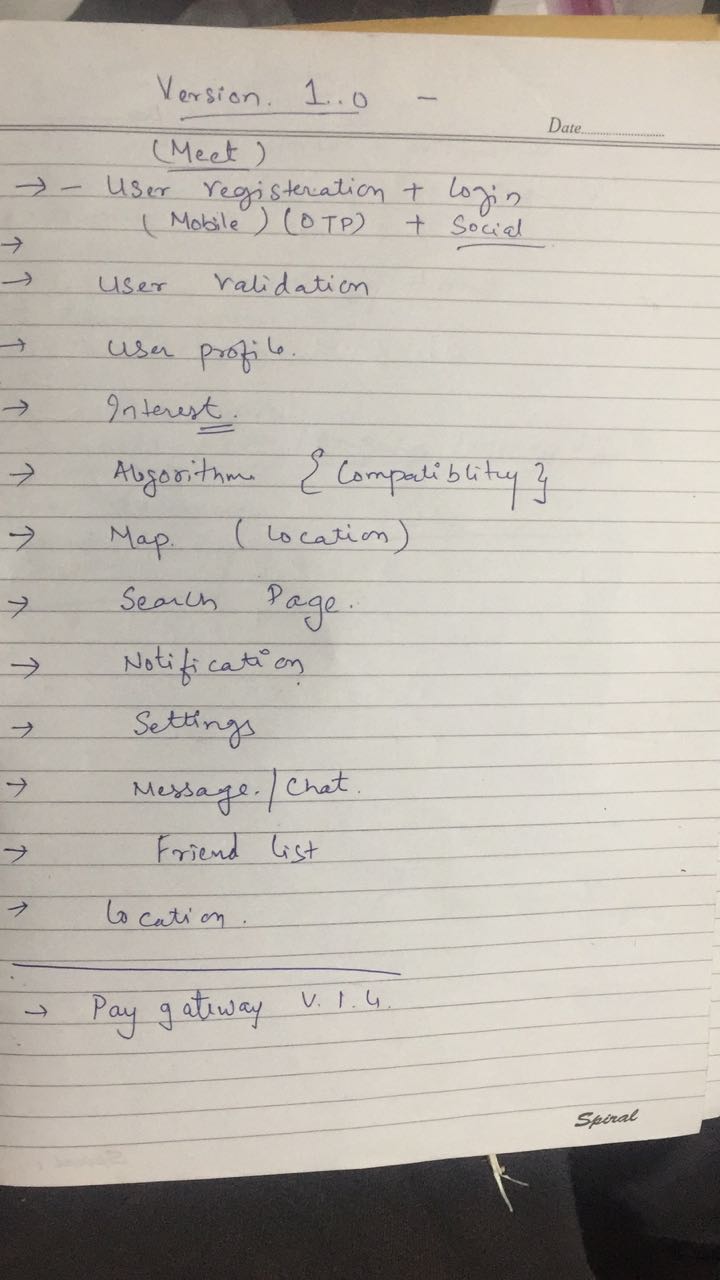 Version. 1..0 -
Date
(Meet)
→ - User registeration + login
(Mobile) (OTP) + Social
→
→ User validation
→ User profile.
→ Interest.
→ Algorithm { Compatiblity }
→ Map. (location)
→ Search Page.
→ Notification
→ Settings
→ Message./Chat.
→ Friend list
→ location.
→ Pay gateway V.1.4.
Spiral